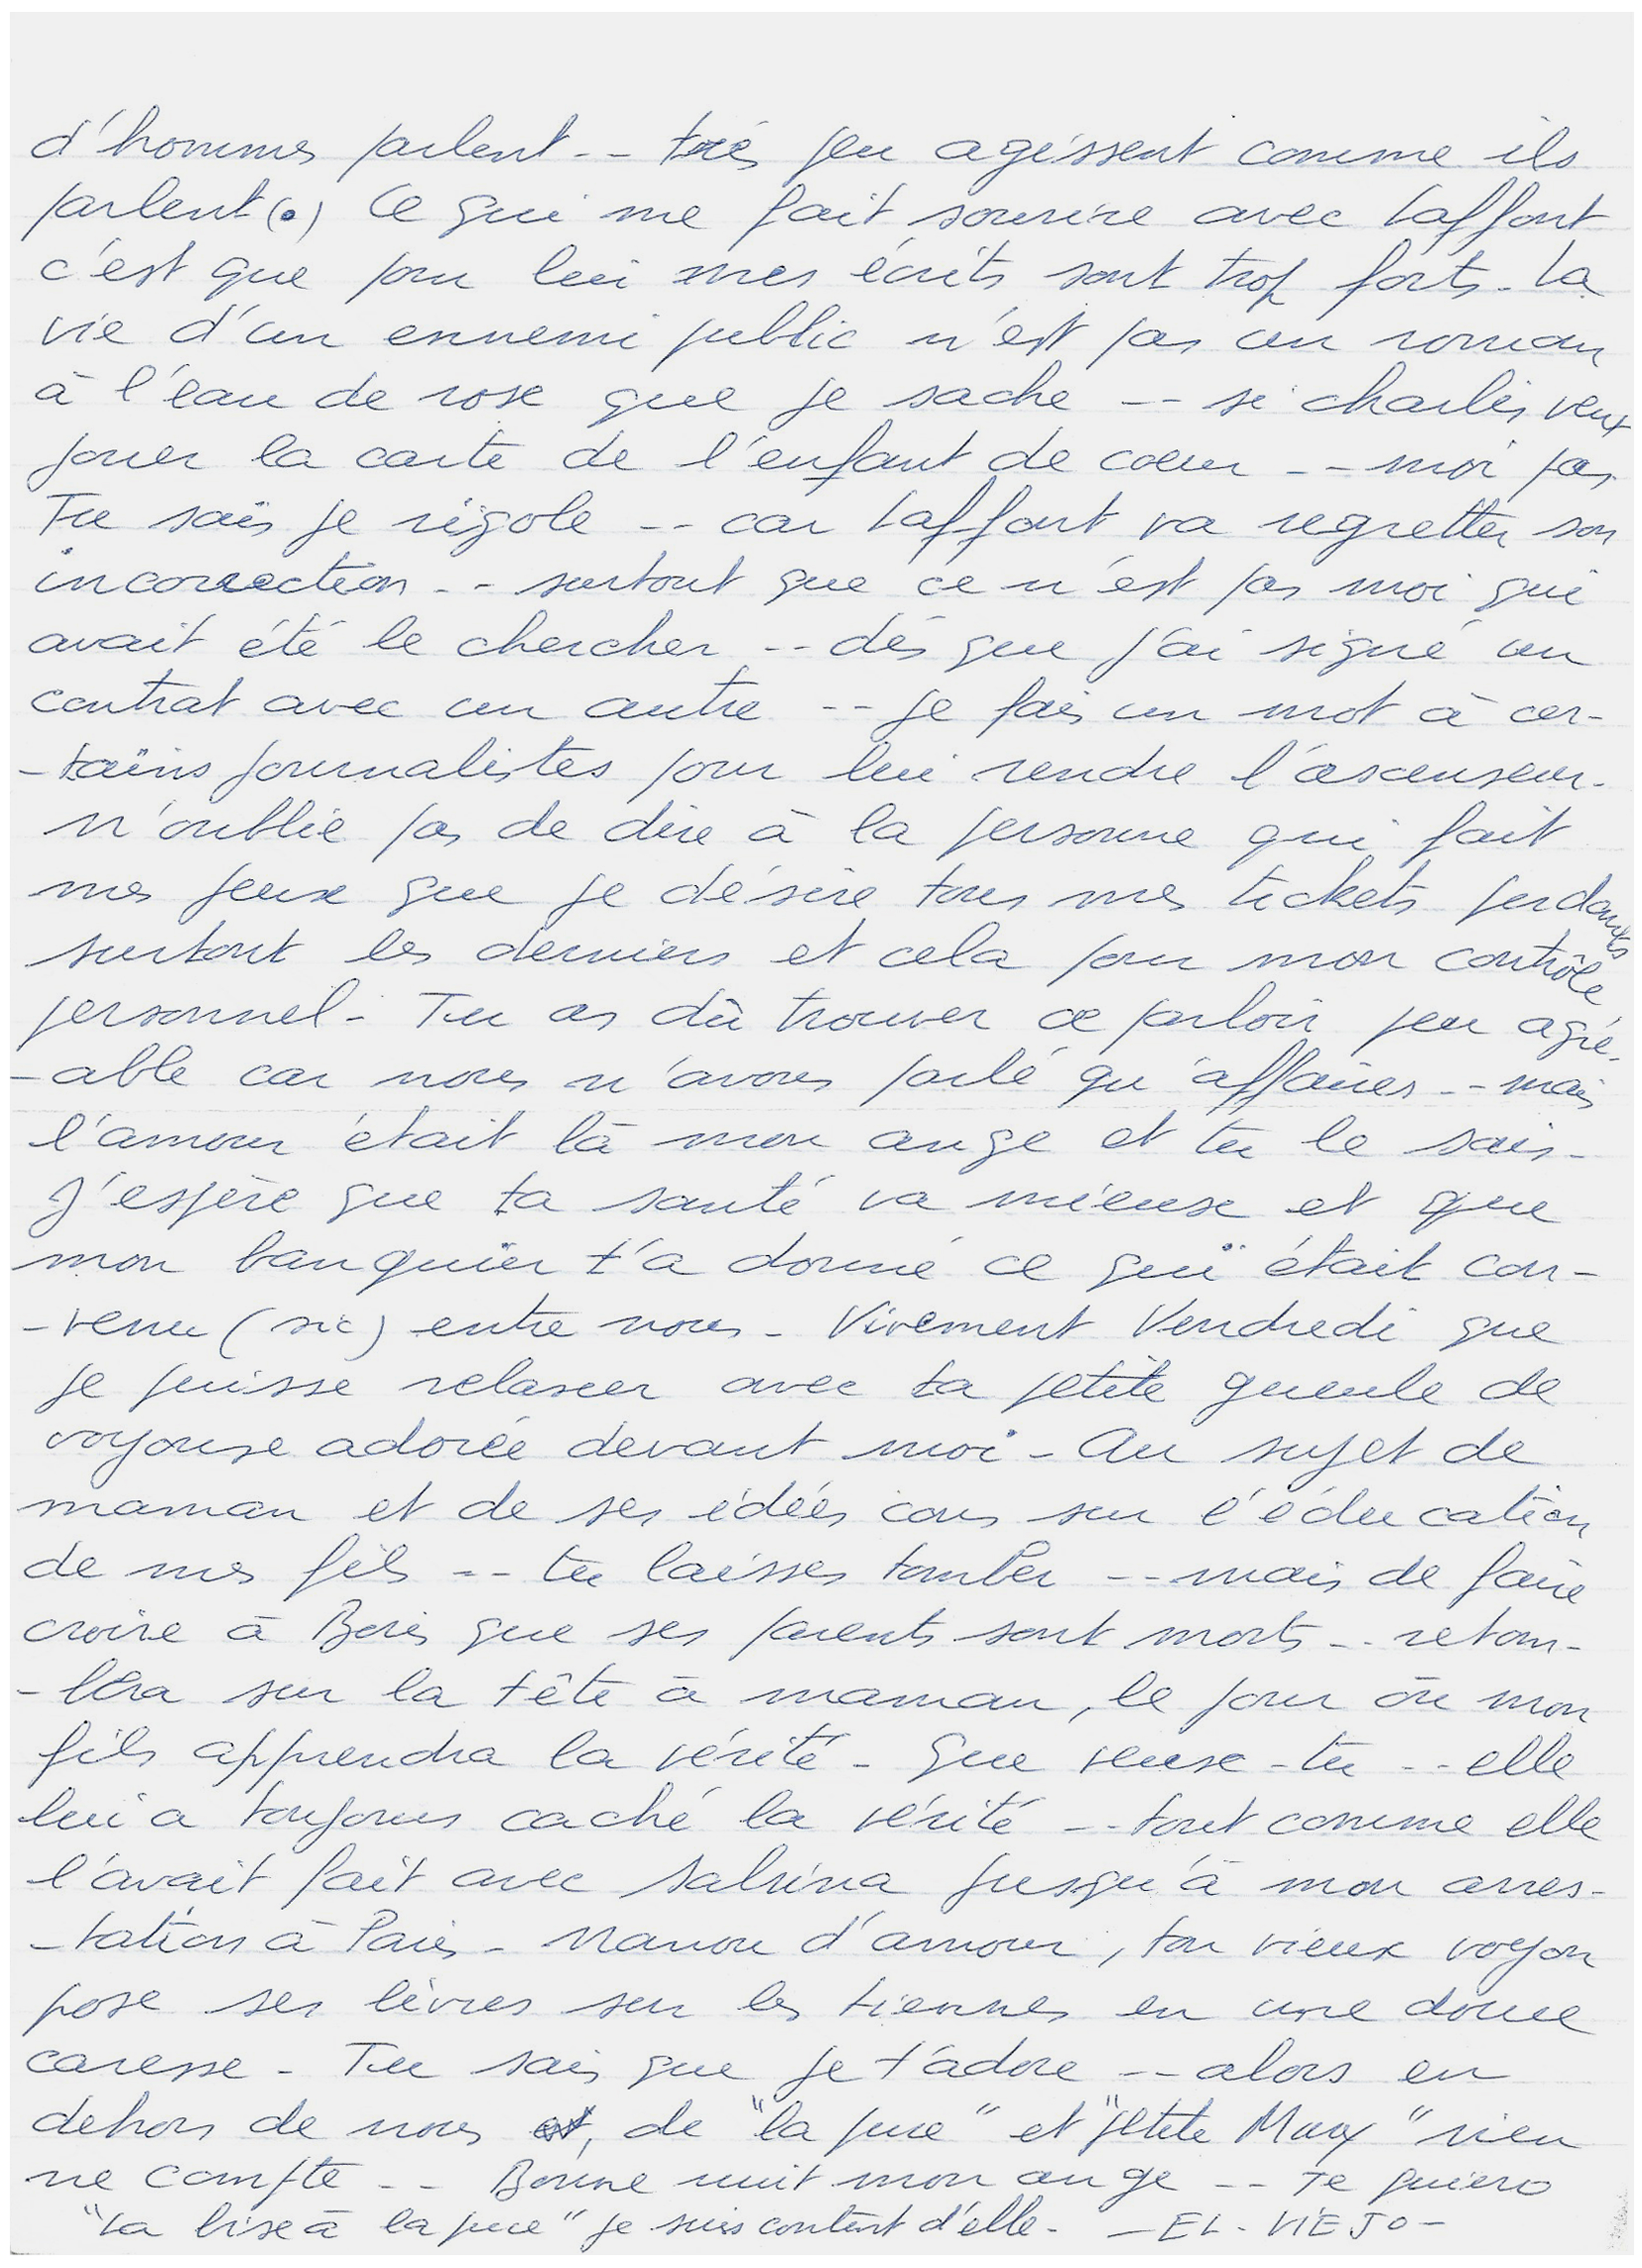 d'hommes parlent -- très peu agissent comme ils
parlent (.) Ce qui me fait sourire avec Laffont
c'est que pour lui mes écrits sont trop forts - La
vie d'un ennemi public n'est pas un roman
à l'eau de rose que je sache -- si charlies veux
jouer la carte de l'enfant de coeur -- moi pas
Tu sais je rigole -- car Laffont va regretter son
incorrection -- surtout que ce n'est pas moi qui
avait été le chercher -- dés que j'ai signé un
contrat avec un autre -- je fais un mot à cer-
-tains journalistes pour lui rendre l'ascenseur.
N'oublie pas de dire à la personne qui fait
mes jeux que je désire tous mes tickets perdants
surtout les derniers et cela pour mon contrôle
personnel - Tu as dû trouver ce parloir peu agré-
-able car nous n'avons parlé qu'affaires -- mais
l'amour était là mon ange et tu le sais -
J'espère que ta santé va mieux et que
mon banquier t'a donné ce qui était con-
-venu (sic) entre nous - Vivement Vendredi que
je puisse relaxer avec ta petite gueule de
voyouse adorée devant moi - Au sujet de
maman et de ses idées cons sur l'éducation
de mes fils -- tu laisses tomber -- mais de faire
croire à Boris que ses parents sont morts -- retom-
-bera sur la tête à maman, le jour où mon
fils apprendra la vérité - Que veux-tu -- elle
lui a toujours caché la vérité -- tout comme elle
l'avait fait avec Sabrina jusqu'à mon arres-
-tation à Paris - Nanou d'amour, ton vieux voyou
pose ses lèvres sur les tiennes en une douce
caresse - Tu sais que je t'adore -- alors en
dehors de nous, de "la puce" et "petite Maxy" rien
ne compte -- Bonne nuit mon ange -- Te quiero
"La bise à la puce" je suis content d'elle - - EL - VIEJO -